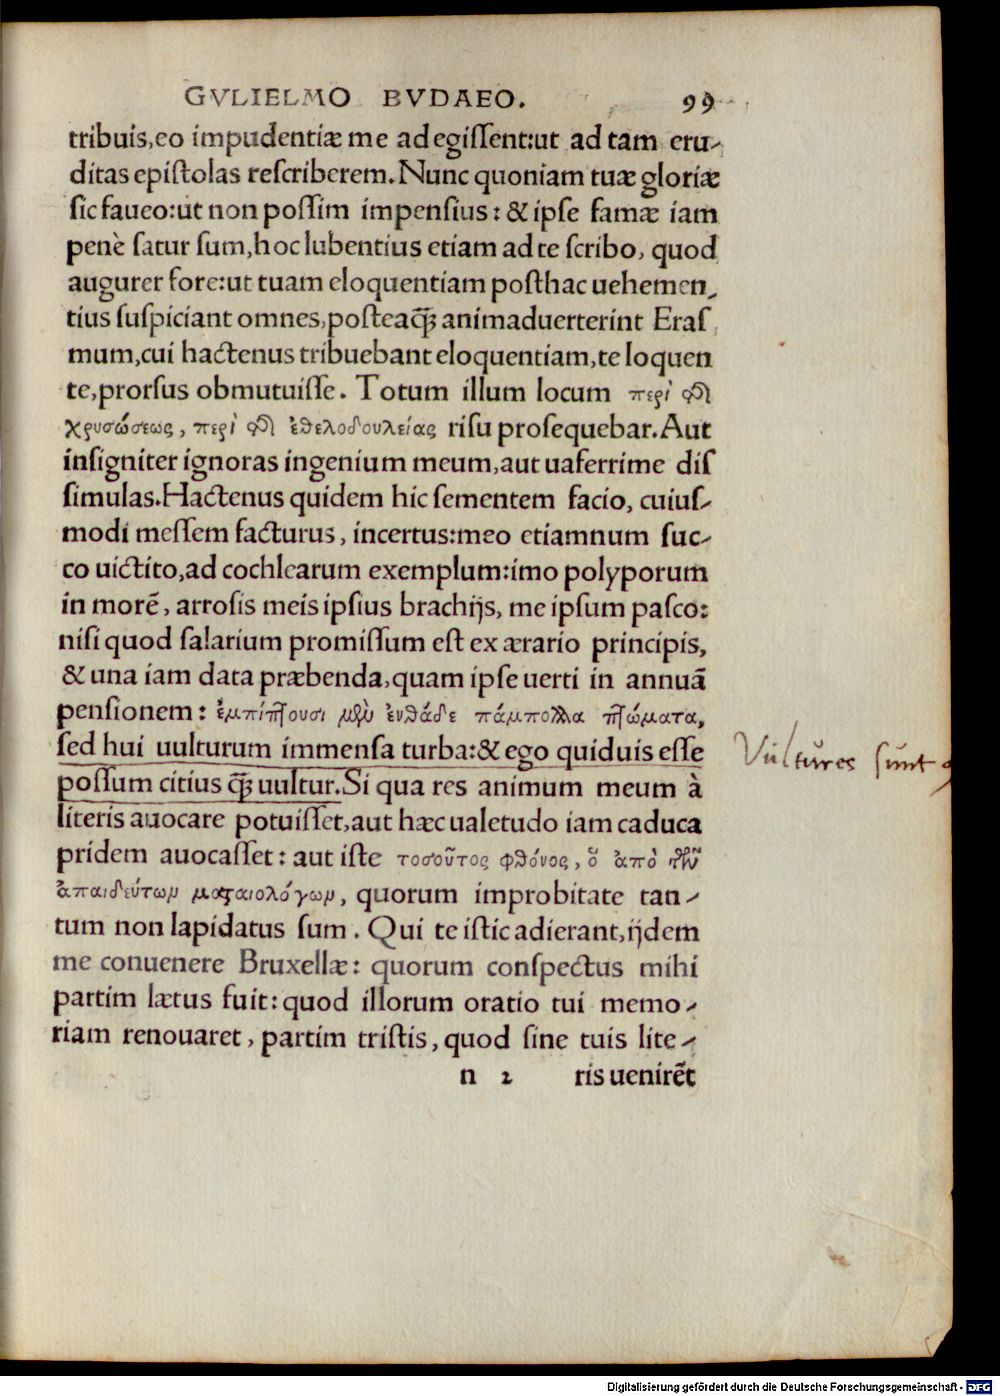 GVLIELMO BVDAEO. 99
tribuis,eo impudentiæ me adegiſſent:ut ad tam eru-
ditas epiſtolas reſcriberem.Nunc quoniam tuæ gloriæ
ſic faueo:ut non poſſim impenſius: & ipſe famæ iam
penè ſatur ſum,hoc lubentius etiam ad te ſcribo, quod
augurer fore:ut tuam eloquentiam poſthac uehemen-
tius ſuſpiciant omnes,poſteaq̃ꝫ animaduerterint Eraſ
mum,cui hactenus tribuebant eloquentiam,te loquen
te,prorſus obmutuiſſe. Totum illum locum περὶ τῆς
χρυσώσεως, περὶ τῆς ἐθελοδουλείας riſu proſequebar.Aut
inſigniter ignoras ingenium meum,aut uaferrime diſ
ſimulas.Hactenus quidem hic ſementem facio, cuiuſ-
modi meſſem facturus, incertus:meo etiamnum ſuc-
co uictito,ad cochlearum exemplum:imo polyporum
in morē, arroſis meis ipſius brachijs, me ipſum paſco:
niſi quod ſalarium promiſſum eſt ex ærario principis,
& una iam data præbenda,quam ipſe uerti in annuā
penſionem: ἐμπίπτουσι μὲν ἐνθάδε πάμπολλα πτώματα,
ſed hui uulturum immenſa turba:& ego quiduis eſſe
poſſum citius q̃ꝫ uultur.Si qua res animum meum à
literis auocare potuiſſet,aut hæc ualetudo iam caduca
pridem auocaſſet: aut iſte τοσοῦτος φθόνος, ὃ ἀπὸ τῶν
ἀπαιδεύτων ματαιολόγων, quorum improbitate tan-
tum non lapidatus ſum. Qui te iſtic adierant,ijdem
me conuenere Bruxellæ: quorum conſpectus mihi
partim lætus fuit:quod illorum oratio tui memo-
riam renouaret, partim triſtis, quod ſine tuis lite-
n 2 ris uenirēt
Vultures sunt
Digitalisierung gefördert durch die Deutsche Forschungsgemeinschaft - DFG